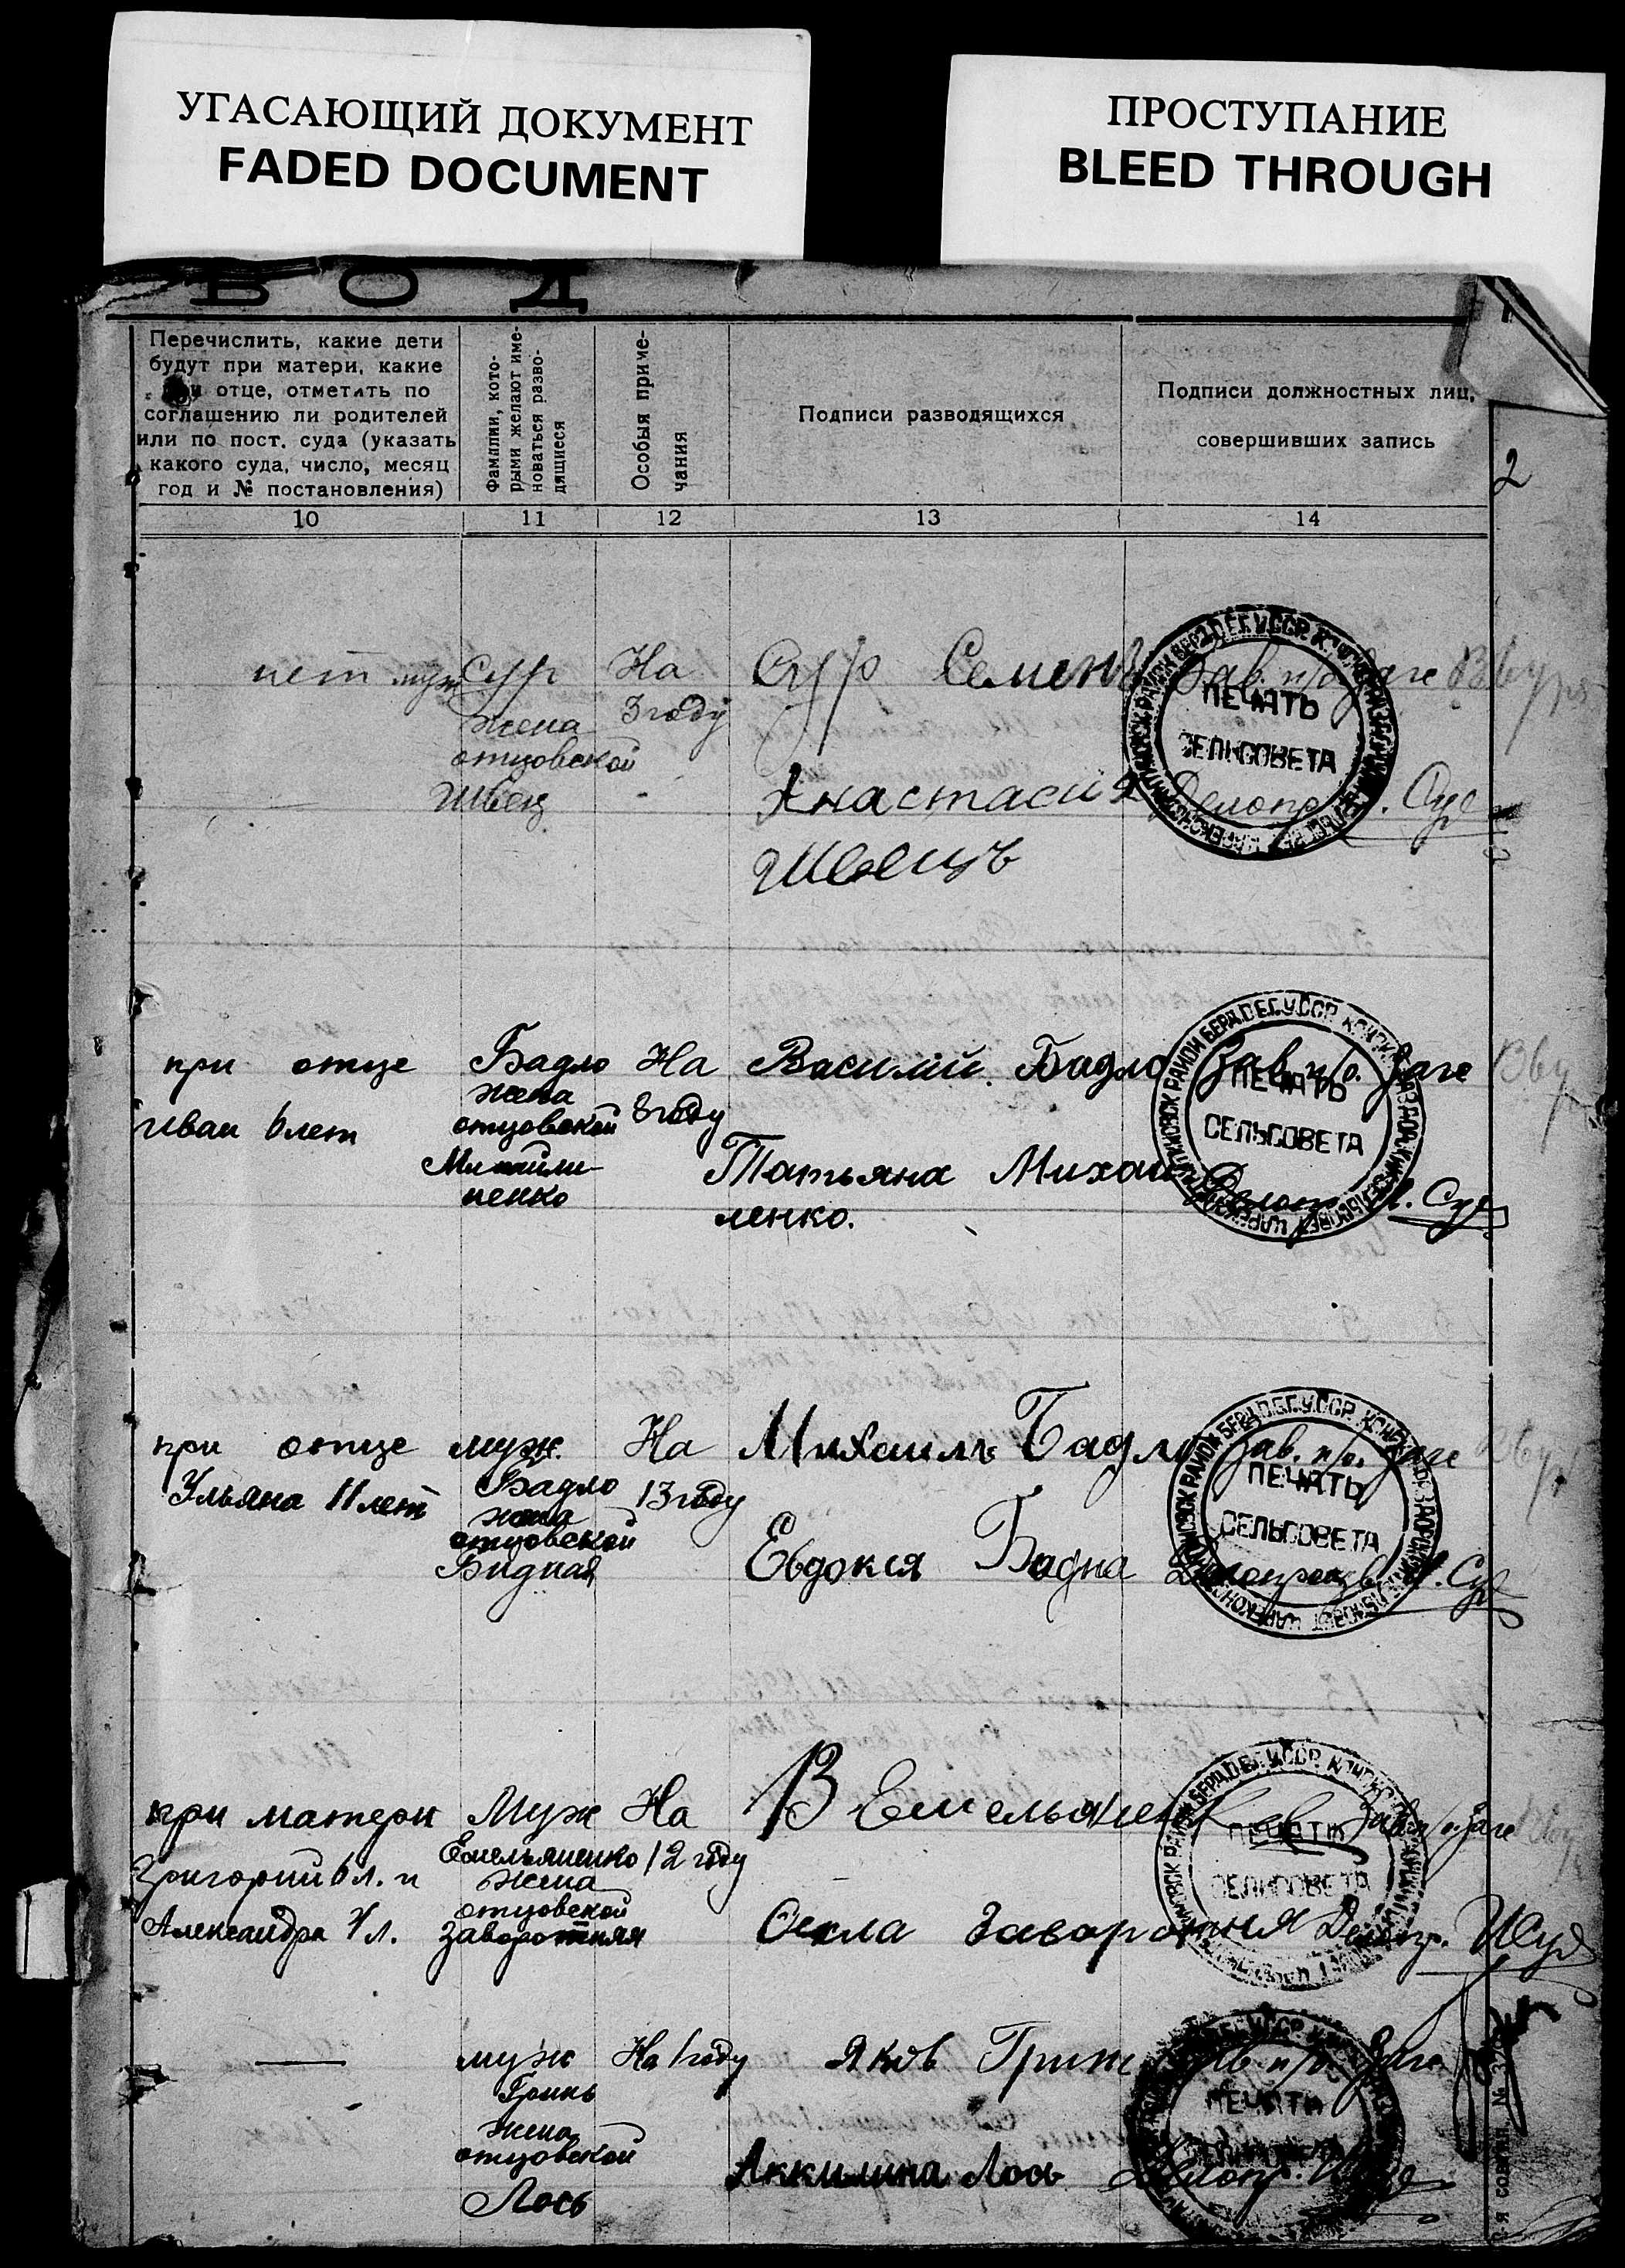 УГАСАЮЩИЙ ДОКУМЕНТ
FADED DOCUMENT
ПРОСТУПАНИЕ
BLEED THROUGH
В О Д
Перечислить, какие дети
будут при матери, какие
отце, отметить по
соглашению ли родителей
или по пост. суда (указать
какого суда, число, месяц
год и № постановления)
Фамилии, кото-
рыми желают име-
новаться разво-
дящиеся
Особыя приме-
чания
Подписи разводящихся
Подписи должностных лиц,
совершивших запись
2
10 11 12 13 14
нет муж Сур На Сур Семен Зав. п/о Загс
жена 3 году
отцовской
Швец
Анастасия Делопр
Швецъ
ПЕЧАТЬ
СЕЛЬСОВЕТА
при отце Бадло На Василий Бадло Зав. п/о. Загс
жена
Иван 6 лет отцовской 8 году
Михайли-
ненко
Татьяна Михай
ленко.
ПЕЧАТЬ
СЕЛЬСОВЕТА
при отце муж На Михаилъ Бадло Зав. п/о. Загс
Ульяна 11 лет Бадло 13 году
жена
отцовской
Бидная
Евдокия Бадна Делопроизв
ПЕЧАТЬ
СЕЛЬСОВЕТА
при матери Муж На В Емельянен
Григорий 6 л. и Емельяненко 12 году
жена
отцовской
Александра 4 л. Заворотняя Фекла Заворотния Делопр.
ПЕЧАТЬ
СЕЛЬСОВЕТА
— муж На 1 году Яков Гринь Зав п/о Загс
Гринь
жена
отцовской
Лось
Аккилина Лось Делопр.
ПЕЧАТЬ